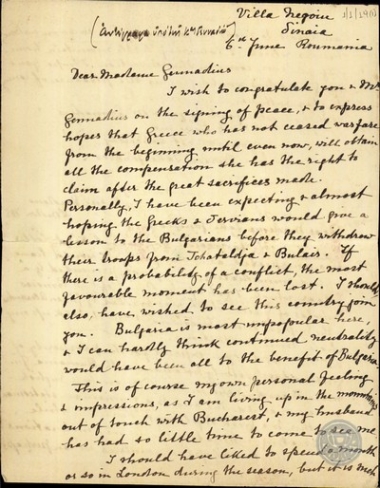 Villa Negoiu
Sinaia
6th June Roumania
Dear Madame Gennadius
I wish to congratulate you & Mr
Gennadius on the signing of peace, & to express
hopes that Greece who has not ceased warfare
from the beginning until even now, will obtain
all the compensation she has the right to
claim after the great sacrifices made.
Personally, I have been expecting & almost
hoping the Greeks & Servians would give a
lesson to the Bulgarians before they withdrew
their troops from Tchataldja & Bulair. If
there is a probability of a conflict, the most
favourable moment has been lost. I should,
also, have wished to see this country join
you. Bulgaria is most unpopular here,
& I can hardly think continued neutrality
would have been all to the benefit of Bulgaria
This is of course my own personal feeling
& impressions, as I am living up in the mountains
out of touch with Bucharest, & my husband
has had so little time to come to see me
I should have liked to spend a month
or so in London during the season, but it is